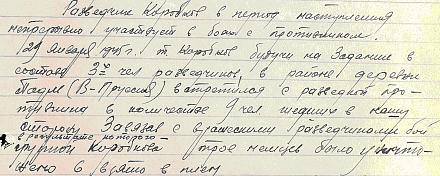 Разведчик Коробков в период наступления
непрерывно участвует в боях с противником.
29 января 1945 г. т. Коробков будучи на задании в
составе 3х чел разведчиков, в районе деревни
(В-Пруссия) встретился с разведкой про-
тивника в количестве 9 чел. шедших в нашу
сторону. Завязав с вражескими разведчиками бой
в результате которого
группой Коробкова трое немцев было уничто-
жено 6 взято в плен